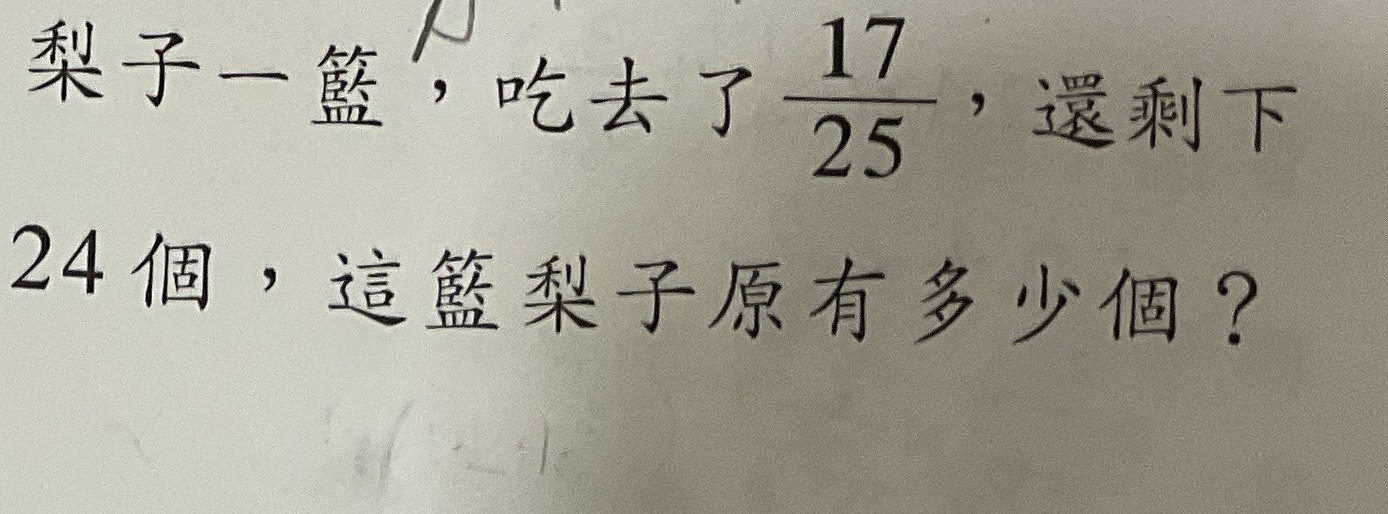 梨子一籃,吃去了17/25,還剩下
24個,這籃梨子原有多少個?